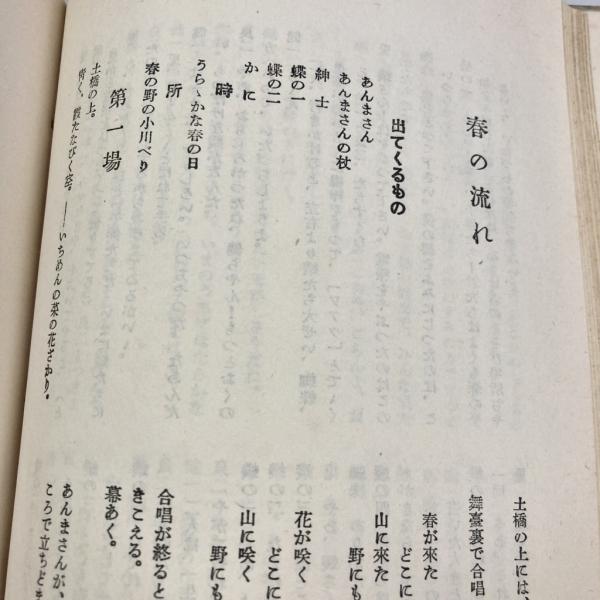 春の流れ
出てくるもの
あんまさん
あんまさんの杖
紳士
蝶の一
蝶の二
かに
時
うらゝかな春の日
所
春の野の小川べり
第一場
土橋の上。
青く、霞たなびく空。――いちめんの菜の花ざかり。
土橋の上には、
舞臺裏で合唱
春が來た
どこに
山に來た
野にも
花が咲く
どこに
山に咲く
野にも
合唱が終ると
きこえる。
幕あく。
あんまさんが、
ころで立ちど